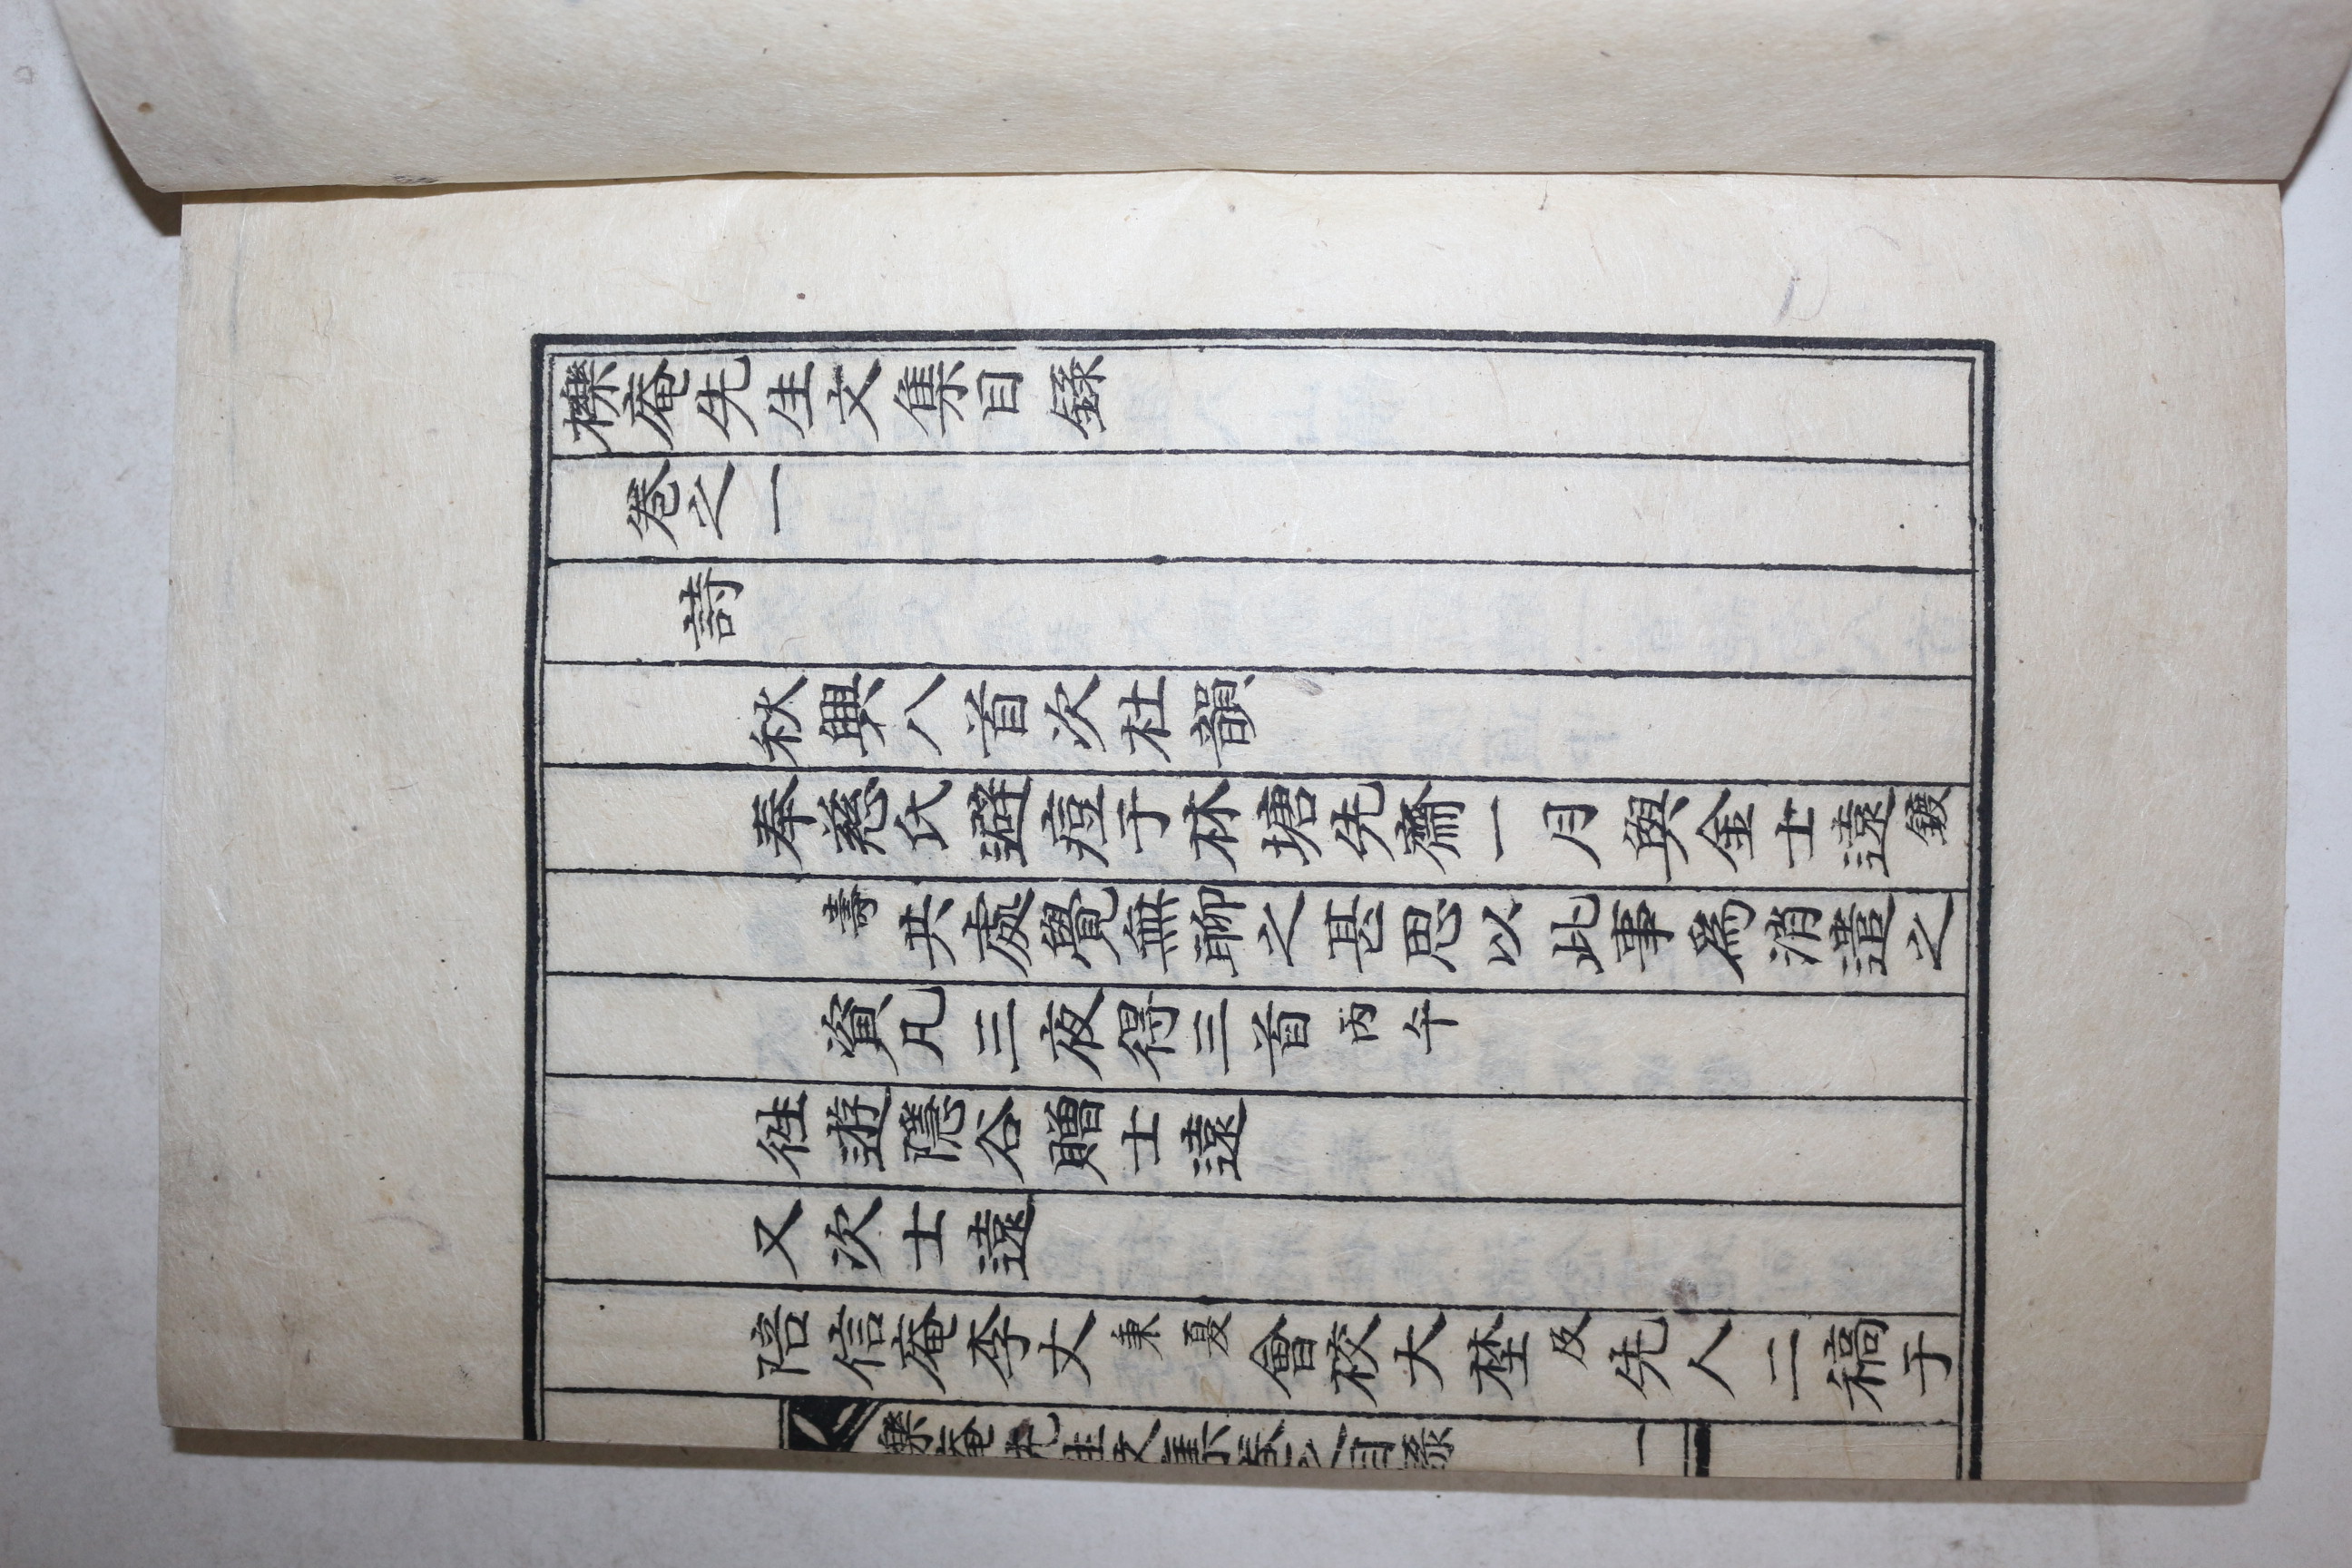 櫟庵先生文集目錄
卷之一
詩
秋興八首次杜韻
奉慈氏避痘于林塘先齋一月與金士遠鍰
壽共處覺無聊之甚思以此事爲消遣之
資凡三夜得三首丙午
往遊隱谷贈士遠
又次士遠
陪信庵李丈東夏會校大埜及先人二稿于
櫟庵先生文集卷之目錄 一